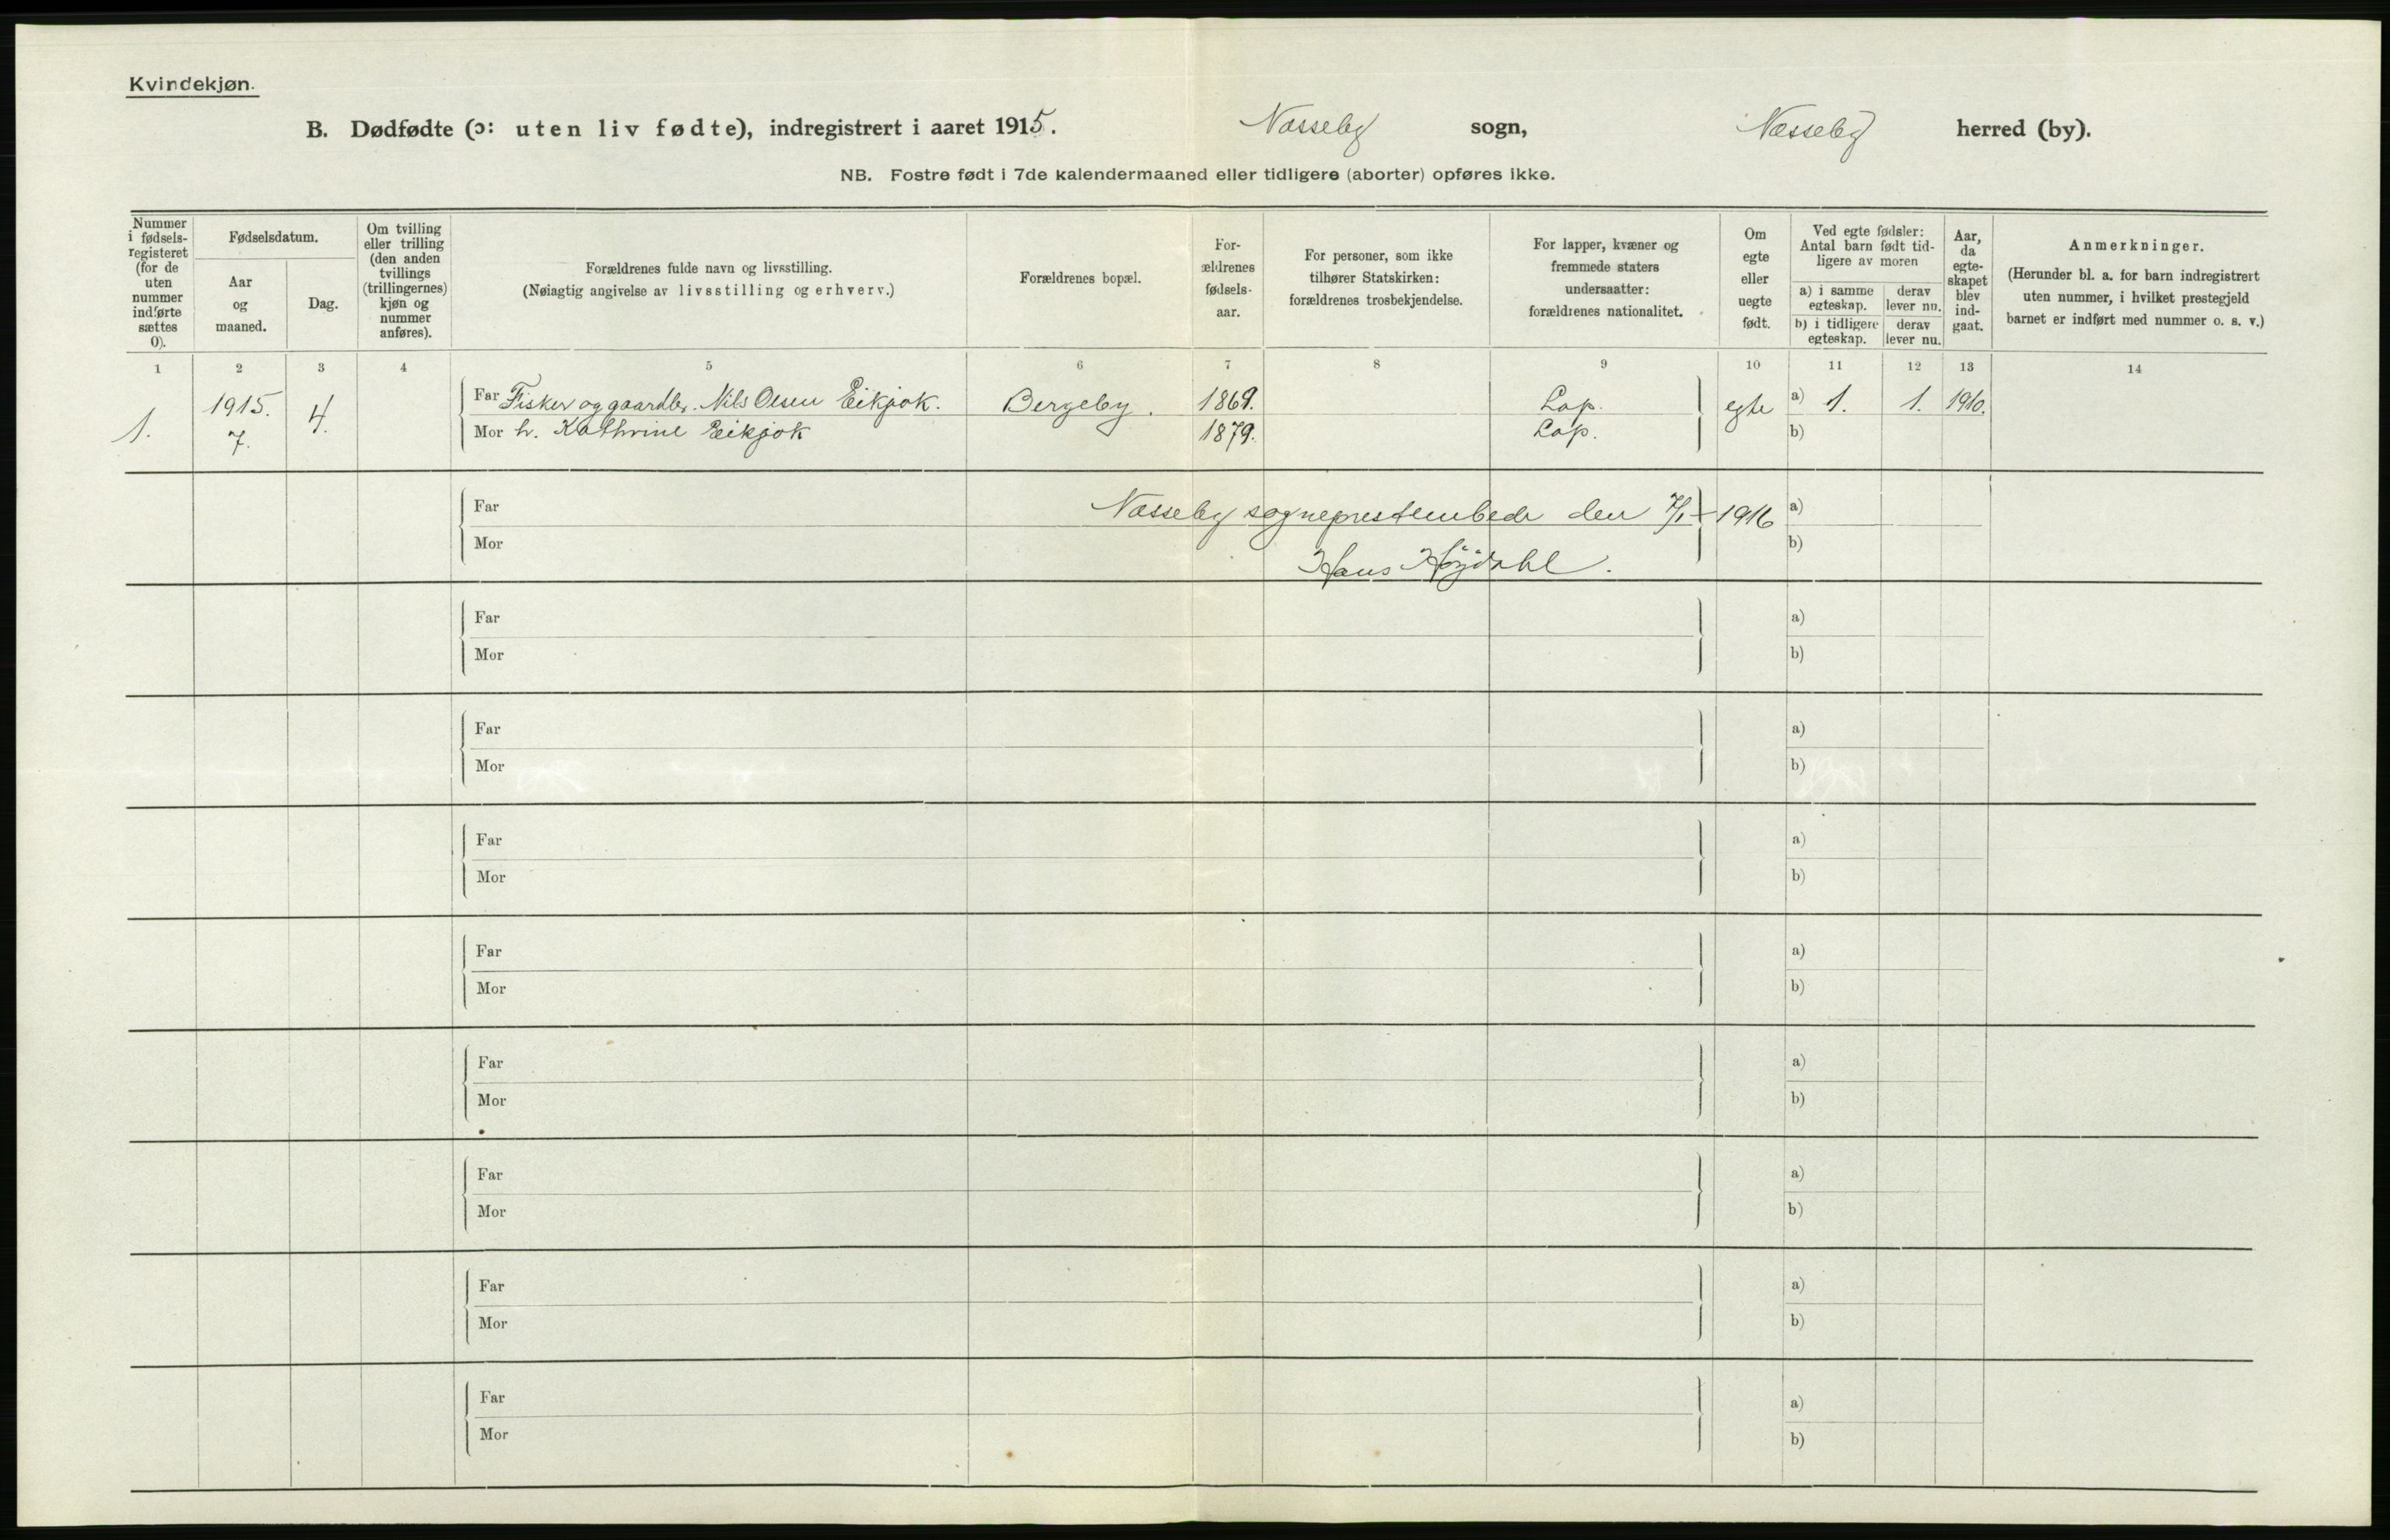 Kvindekjøn.
B. Dødfødte (ɔ: uten liv fødte), indregistrert i aaret 1915. Næsseby sogn, Næsseby herred (by).
NB. Fostre født i 7de kalendermaaned eller tidligere (aborter) opføres ikke.
Nummer i fødsels-registeret (for de uten nummer indførte sættes 0).
Fødselsdatum.
Aar og maaned.
Dag.
Om tvilling eller trilling (den anden tvillings (trillingernes) kjøn og nummer anføres).
Forældrenes fulde navn og livsstilling.
(Nøiagtig angivelse av livsstilling og erhverv.)
Forældrenes bopæl.
For-ældrenes fødsels-aar.
For personer, som ikke tilhører Statskirken: forældrenes trosbekjendelse.
For lapper, kvæner og fremmede staters undersaatter: forældrenes nationalitet.
Om egte eller uegte født.
Ved egte fødsler: Antal barn født tid-ligere av moren
a) i samme egteskap. derav lever nu.
b) i tidligere egteskap. derav lever nu.
Aar, da egte-skapet blev ind-gaat.
Anmerkninger.
(Herunder bl. a. for barn indregistrert uten nummer, i hvilket prestegjeld barnet er indført med nummer o. s. v.)
1 2 3 4 5 6 7 8 9 10 11 12 13 14
1. 1915. 7. 4. Far Fisker og gaardbr. Nils Olsen Eikjok. Bergeby. 1869. Lap. egte a) 1. 1. 1910.
Mor h. Kathrine Eikjok 1879. Lap. b)
Far Næsseby sogneprestembede den 7/1 1916 a)
Mor Hans Höydahl. b)
Far a)
Mor b)
Far a)
Mor b)
Far a)
Mor b)
Far a)
Mor b)
Far a)
Mor b)
Far a)
Mor b)
Far a)
Mor b)
Far a)
Mor b)